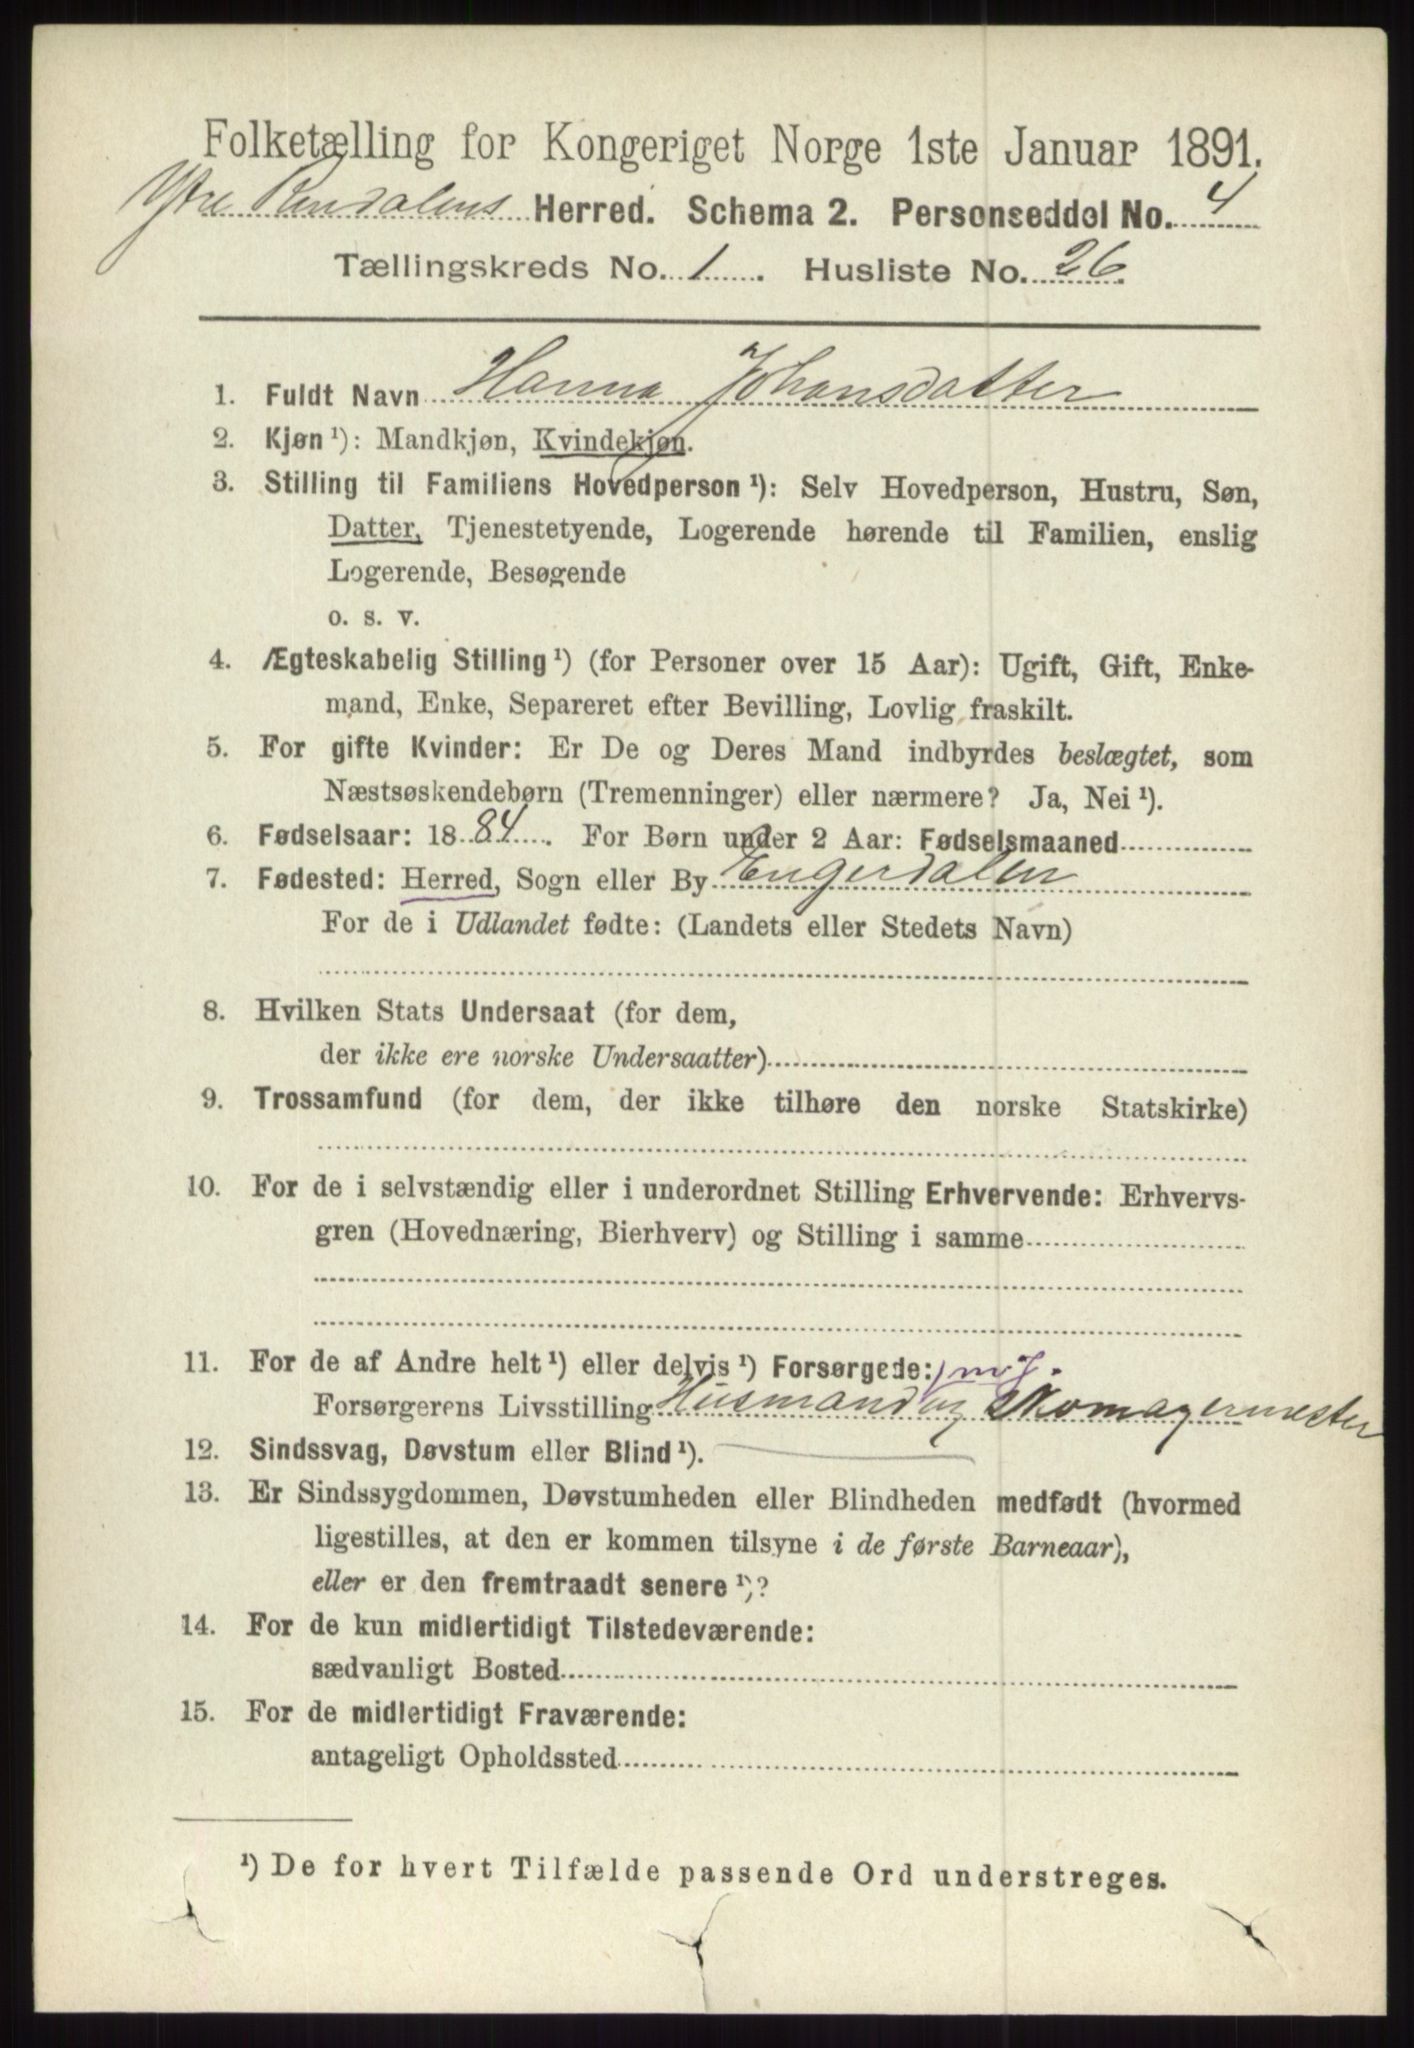 Folketælling for Kongeriget Norge 1ste Januar 1891.
Ytre Rendalens Herred. Schema 2. Personseddel No. 4
Tællingskreds No. 1. Husliste No. 26.
1. Fuldt Navn Hanna Johansdatter
2. Kjøn ¹): Mandkjøn, Kvindekjøn.
3. Stilling til Familiens Hovedperson ¹): Selv Hovedperson, Hustru, Søn,
Datter, Tjenestetyende, Logerende hørende til Familien, enslig
Logerende, Besøgende
o. s. v.
4. Ægteskabelig Stilling ¹) (for Personer over 15 Aar): Ugift, Gift, Enke-
mand, Enke, Separeret efter Bevilling, Lovlig fraskilt.
5. For gifte Kvinder: Er De og Deres Mand indbyrdes beslægtet, som
Næstsøskendebørn (Tremenninger) eller nærmere? Ja, Nei ¹).
6. Fødselsaar: 1884. For Børn under 2 Aar: Fødselsmaaned
7. Fødested: Herred, Sogn eller By Engerdalen
For de i Udlandet fødte: (Landets eller Stedets Navn)
8. Hvilken Stats Undersaat (for dem,
der ikke ere norske Undersaatter)
9. Trossamfund (for dem, der ikke tilhøre den norske Statskirke)
10. For de i selvstændig eller i underordnet Stilling Erhvervende: Erhvervs-
gren (Hovednæring, Bierhverv) og Stilling i samme
11. For de af Andre helt ¹) eller delvis ¹) Forsørgede:
Forsørgerens Livsstilling Husmand og Skomagermester
12. Sindssvag, Døvstum eller Blind ¹).
13. Er Sindssygdommen, Døvstumheden eller Blindheden medfødt (hvormed
ligestilles, at den er kommen tilsyne i de første Barneaar),
eller er den fremtraadt senere ¹)?
14. For de kun midlertidigt Tilstedeværende:
sædvanligt Bosted
15. For de midlertidigt Fraværende:
antageligt Opholdssted
¹) De for hvert Tilfælde passende Ord understreges.